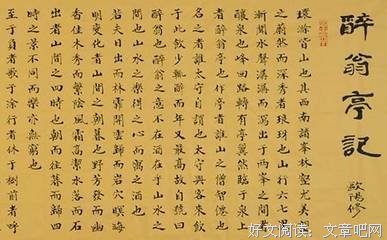 醉翁亭記
歐陽修
環滁皆山也其西南諸峰林壑尤美望
之蔚然而深秀者琅琊也山行六七里
漸聞水聲潺潺而瀉出于兩峯之間者
釀泉也峰回路轉有亭翼然臨于泉上
者醉翁亭也作亭者誰山之僧智仙也
名之者誰太守自謂也太守與客來飲
于此飲少輒醉而年又最高故自號曰
醉翁也醉翁之意不在酒在乎山水之
間也山水之樂得之心而寓之酒也
若夫日出而林霏開雲歸而岩穴暝晦
明變化者山間之朝暮也野芳發而幽
香佳木秀而繁陰風霜高潔水落而石
出者山間之四時也朝而往暮而歸四
時之景不同而樂亦無窮也
至于負者歌于塗行者休于樹前者呼
好文阅读网：文章吧网